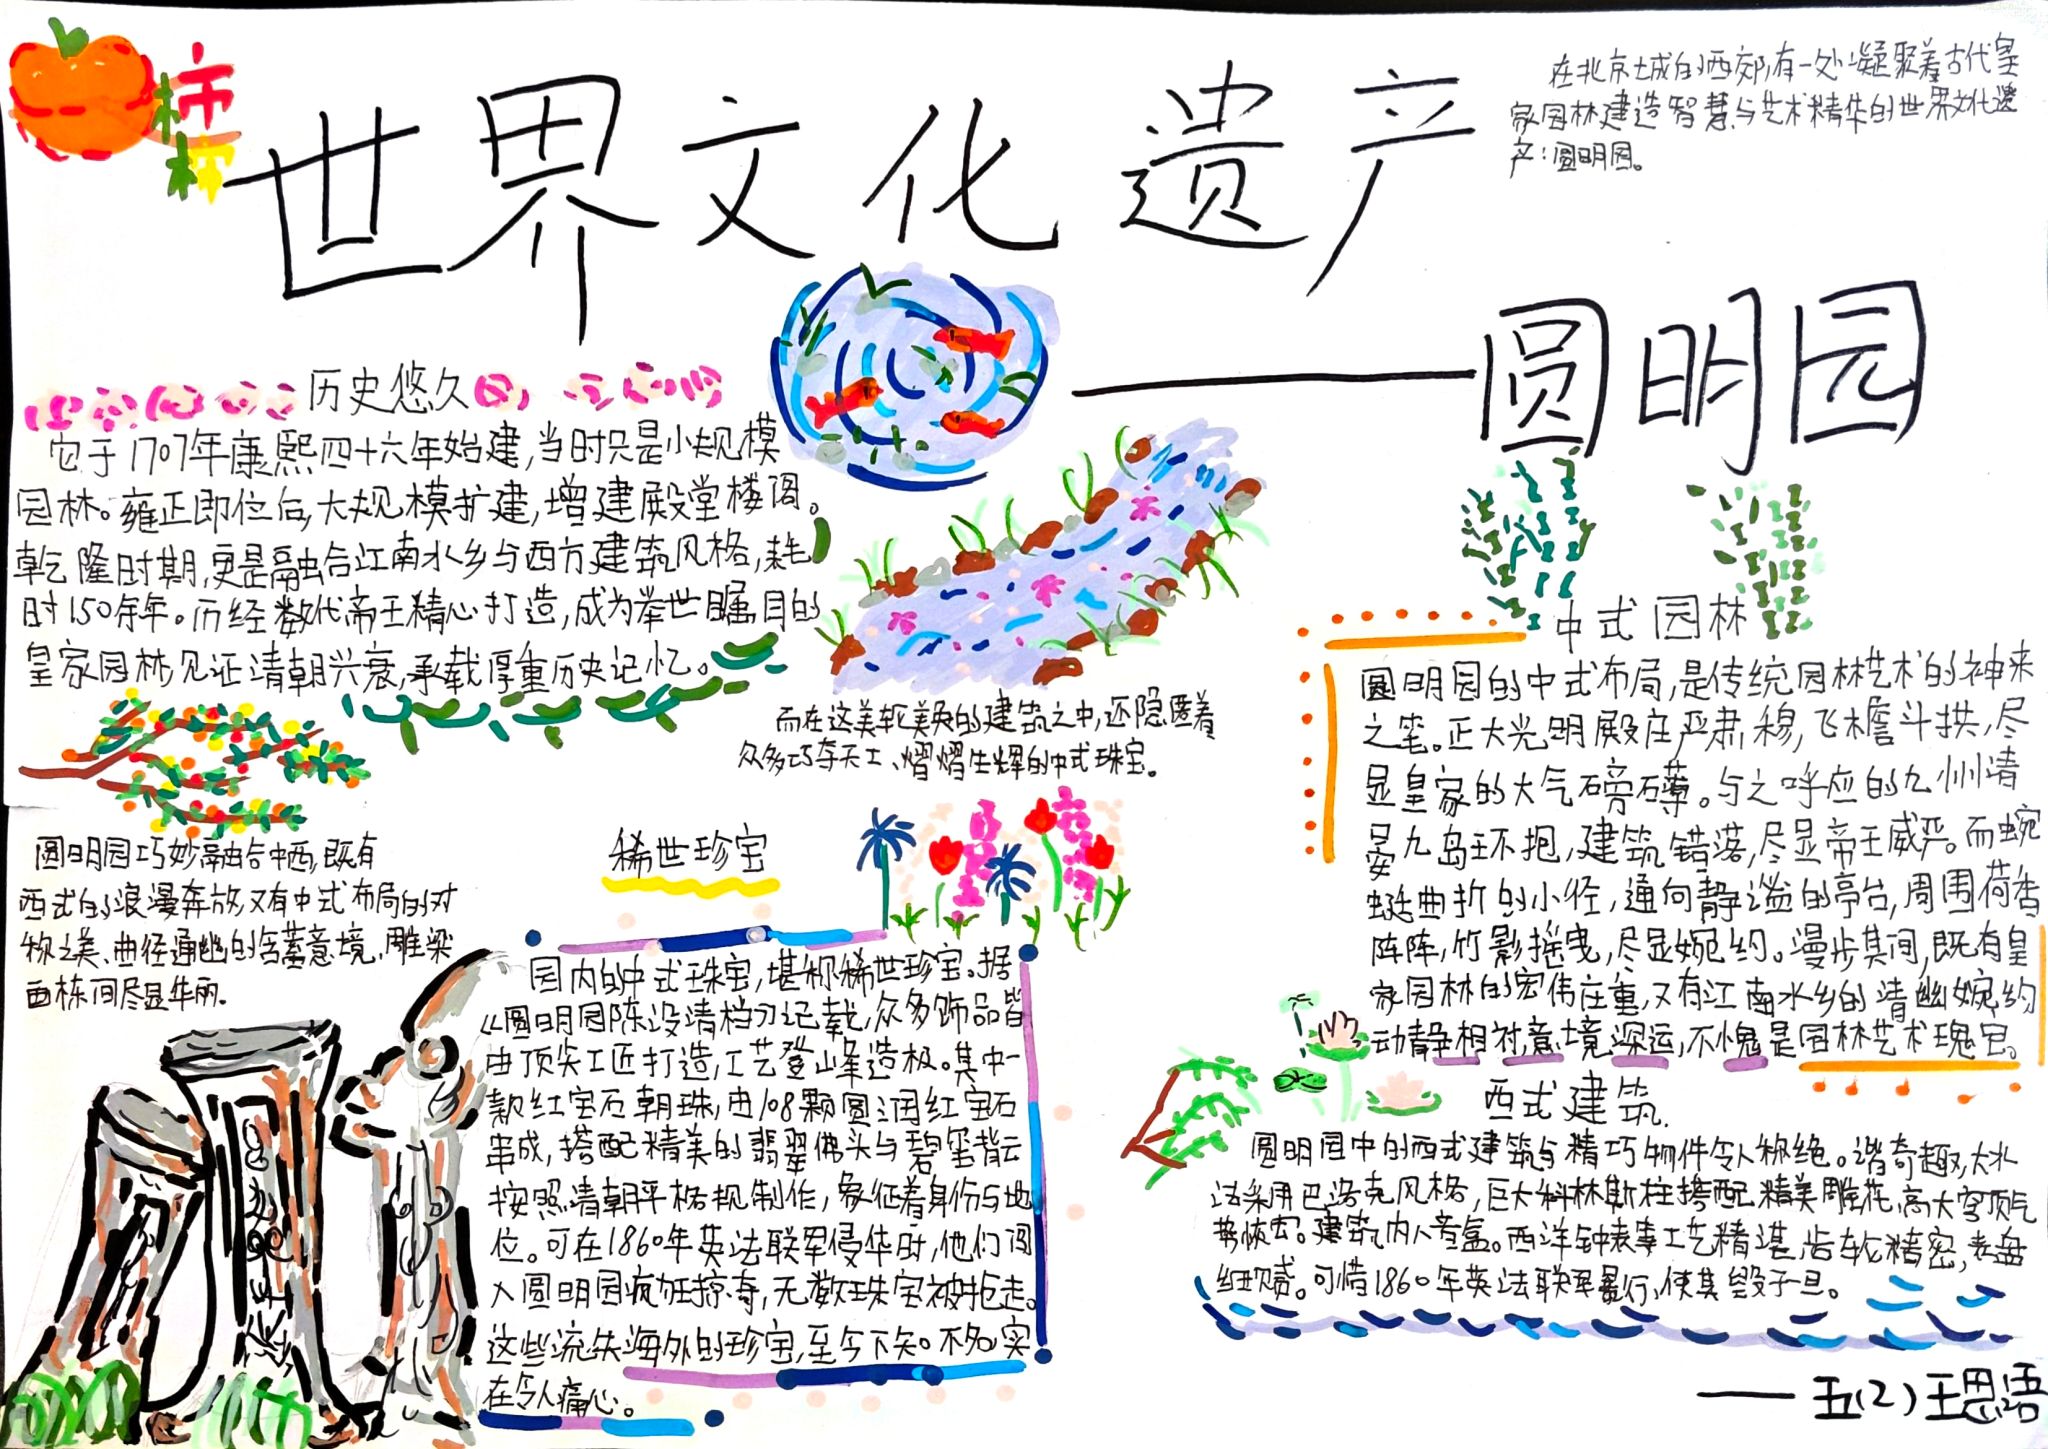 柿
柿
柿
世界文化遗产
——圆明园
在北京城的西郊,有一处凝聚着古代皇
家园林建造智慧与艺术精华的世界文化遗
产:圆明园。
历史悠久
它于1707年康熙四十六年始建,当时只是小规模
园林。雍正即位后,大规模扩建,增建殿堂楼阁。
乾隆时期,更是融合江南水乡与西方建筑风格,耗
时150余年。历经数代帝王精心打造,成为举世瞩目的
皇家园林见证清朝兴衰,承载厚重历史记忆。
而在这美轮美奂的建筑之中,还隐匿着
众多巧夺天工、熠熠生辉的中式珠宝。
圆明园巧妙融合中西,既有
西式的浪漫奔放又有中式布局的对
称之美、曲径通幽的含蓄意境,雕梁
画栋间尽显华丽.
稀世珍宝
园内的中式珠宝,堪称稀世珍宝。据
《圆明园陈设清档》记载,众多饰品皆
由顶尖工匠打造,工艺登山峰造极。其中一
款红宝石朝珠,由108颗圆润红宝石
串成,搭配精美的翡翠佛头与碧玺背云
按照清朝严格规制作,象征着身份与地
位。可在1860年英法联军侵华时,他们闯
入圆明园疯狂掠夺,无数珠宝被抢走。
这些流失海外的珍宝,至今下矢。不名实
在令人痛心。
中式园林
圆明园的中式布局,是传统园林艺术的神来
之笔。正大光明殿庄严肃穆,飞檐斗拱,尽
显皇家的大气磅礴。与之呼应的九州清
晏九岛环抱,建筑错落,尽显帝王威严。而蜿
蜒曲折的小径,通向静谧的亭台,周围荷香
阵阵,竹影摇曳,尽显婉约。漫步其间,既有皇
家园林的宏伟庄重,又有江南水乡的清幽婉约
动静相衬,意境深远,不愧是园林艺术瑰宝。
西式建筑.
圆明园中的西式建筑与精巧物件令人称绝。谐奇趣,大水
法采用巴洛克风格,巨大科林斯柱搭配精美雕花,高大穹顶气
势恢宏。建筑内八音盒。西洋钟表等工艺精湛,齿轮精密,表盘
细腻。可惜1860年英法联军暴行,使其毁于一旦。
——五(2)王思语